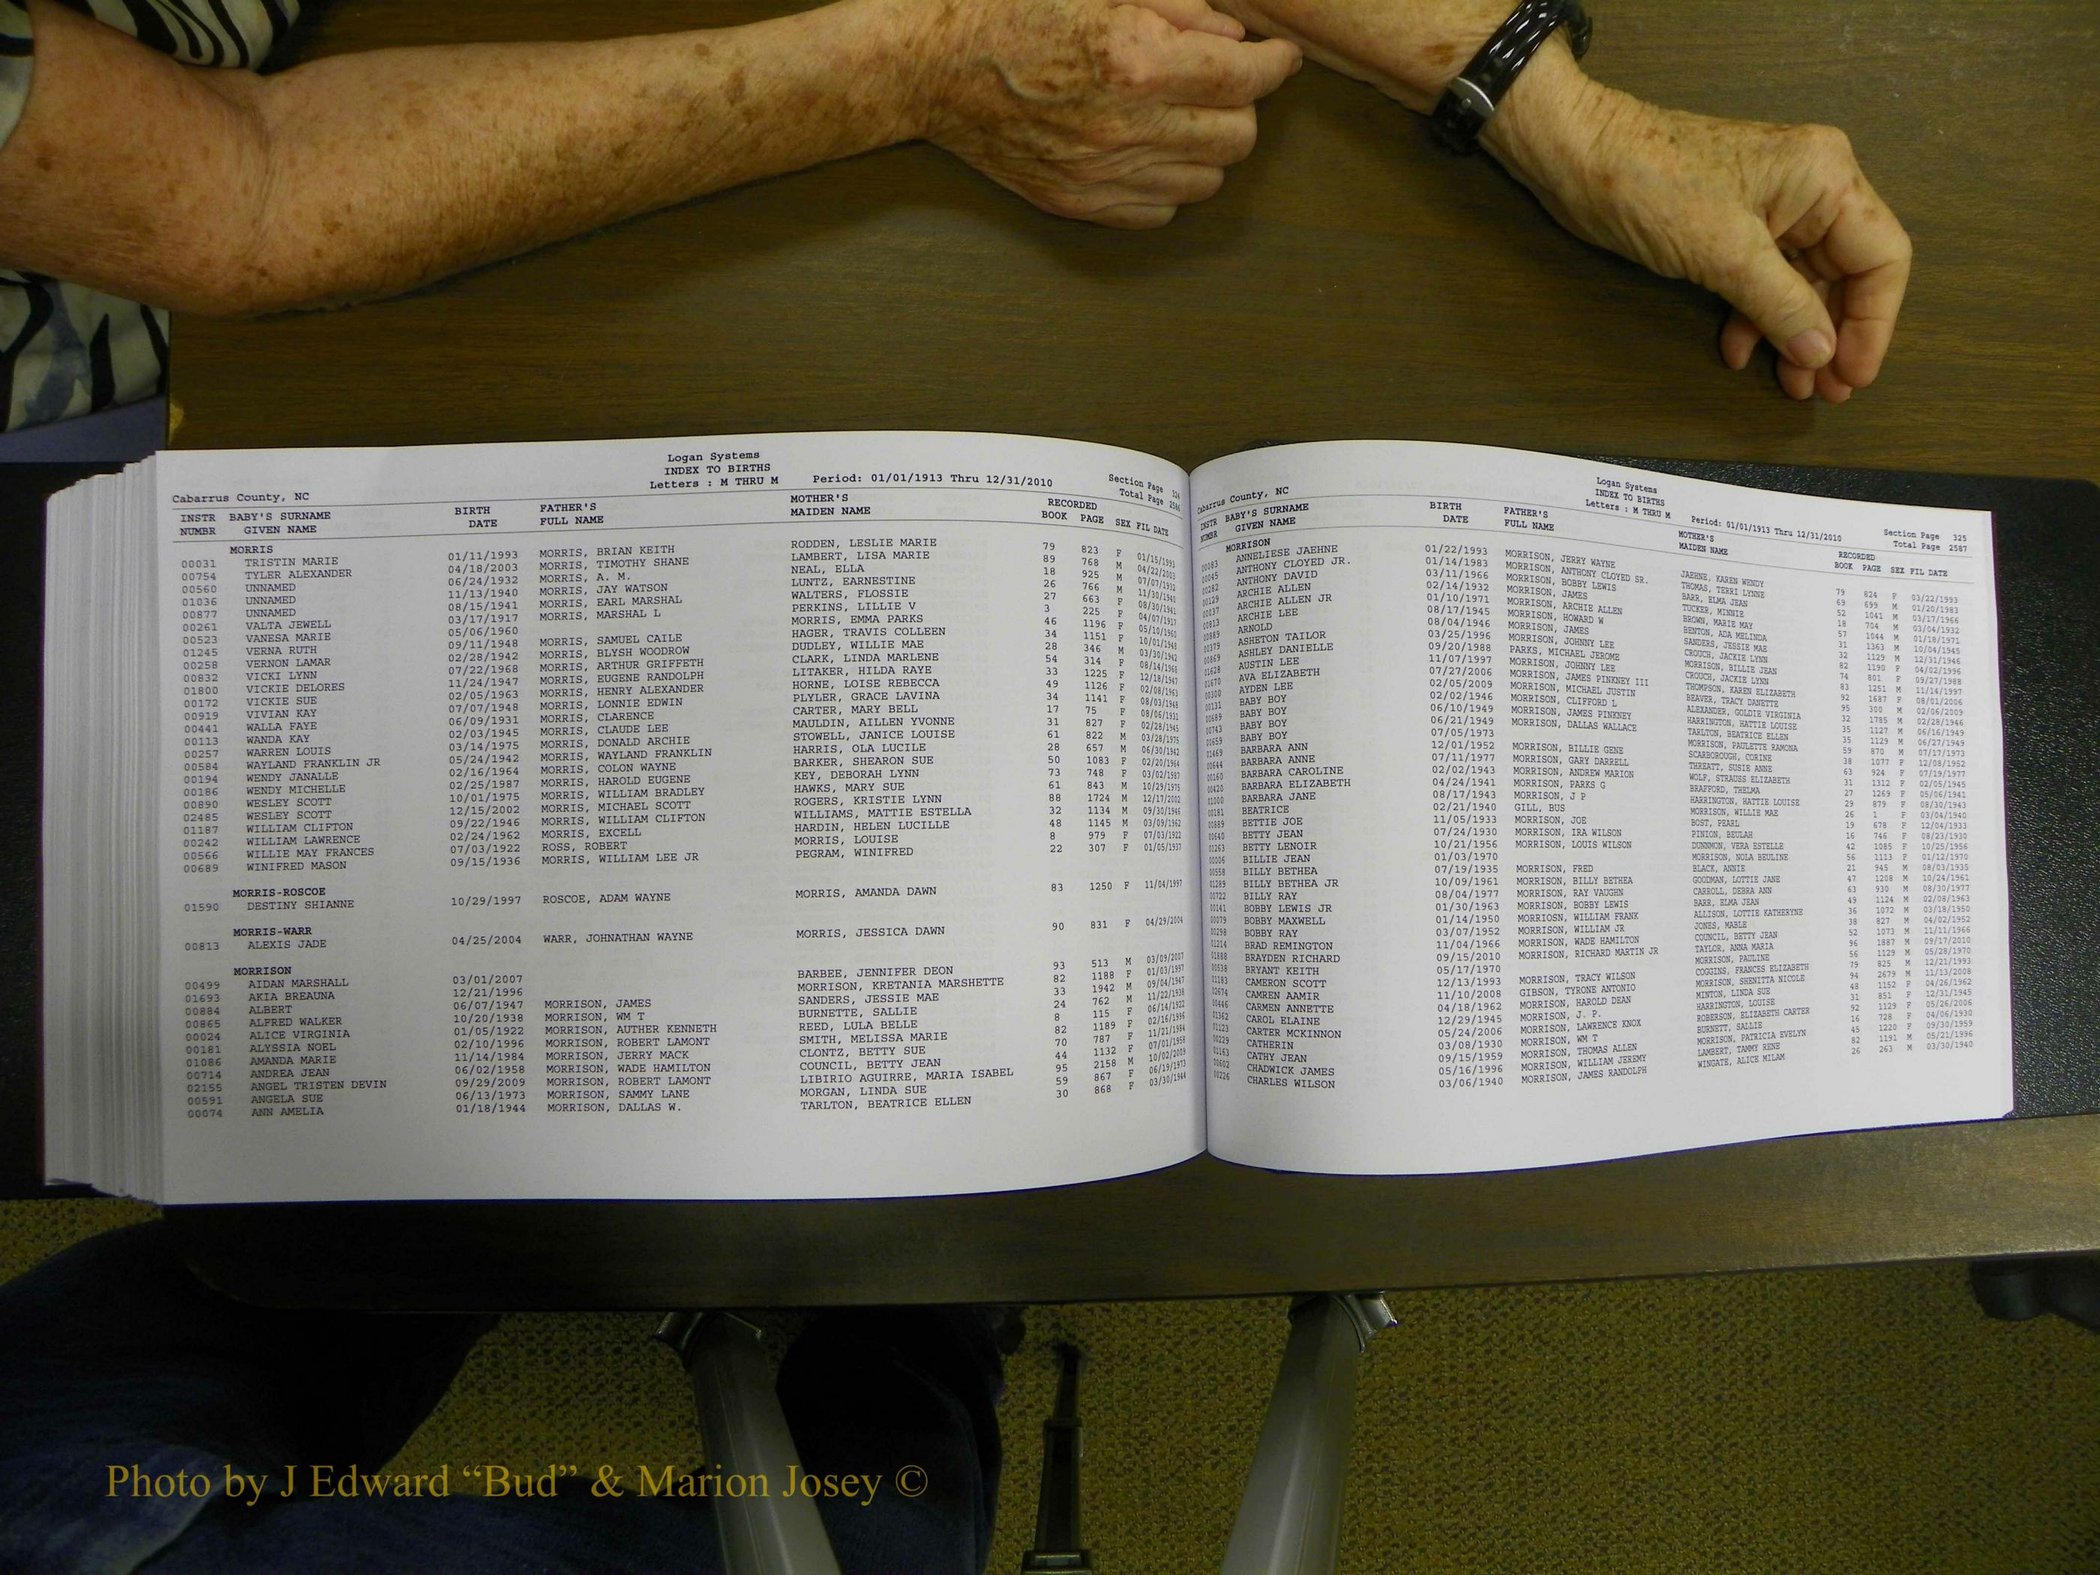 Logan Systems
INDEX TO BIRTHS
Cabarrus County, NC Letters : M THRU M Period: 01/01/1913 Thru 12/31/2010 Section Page
Total Page 2586
INSTR BABY'S SURNAME BIRTH FATHER'S MOTHER'S RECORDED
NUMBR GIVEN NAME DATE FULL NAME MAIDEN NAME BOOK PAGE SEX FIL DATE
MORRIS
00031 TRISTIN MARIE 01/11/1993 MORRIS, BRIAN KEITH RODDEN, LESLIE MARIE 79 823 F 01/15/1993
00754 TYLER ALEXANDER 04/18/2003 MORRIS, TIMOTHY SHANE LAMBERT, LISA MARIE 89 768 M 04/22/2003
00560 UNNAMED 06/24/1932 MORRIS, A. M. NEAL, ELLA 18 925 M 07/07/1932
01036 UNNAMED 11/13/1940 MORRIS, JAY WATSON LUNTZ, EARNESTINE 26 766 M 11/30/1940
00877 UNNAMED 08/15/1941 MORRIS, EARL MARSHAL WALTERS, FLOSSIE 27 663 F 08/30/1941
00261 VALTA JEWELL 03/17/1917 MORRIS, MARSHAL L PERKINS, LILLIE V 3 225 F 04/07/1917
00523 VANESA MARIE 05/06/1960 MORRIS, EMMA PARKS 46 1196 F 05/10/1960
01245 VERNA RUTH 09/11/1948 MORRIS, SAMUEL CAILE HAGER, TRAVIS COLLEEN 34 1151 F 10/01/1948
00258 VERNON LAMAR 02/28/1942 MORRIS, BLYSH WOODROW DUDLEY, WILLIE MAE 28 346 M 03/30/1942
00832 VICKI LYNN 07/22/1968 MORRIS, ARTHUR GRIFFETH CLARK, LINDA MARLENE 54 314 F 08/14/1968
01800 VICKIE DELORES 11/24/1947 MORRIS, EUGENE RANDOLPH LITAKER, HILDA RAYE 33 1225 F 12/18/1947
00172 VICKIE SUE 02/05/1963 MORRIS, HENRY ALEXANDER HORNE, LOISE REBECCA 49 1126 F 02/08/1963
00919 VIVIAN KAY 07/07/1948 MORRIS, LONNIE EDWIN PLYLER, GRACE LAVINA 34 1141 F 08/03/1948
00441 WALLA FAYE 06/09/1931 MORRIS, CLARENCE CARTER, MARY BELL 17 75 F 08/06/1931
00113 WANDA KAY 02/03/1945 MORRIS, CLAUDE LEE MAULDIN, AILLEN YVONNE 31 827 F 02/28/1945
00257 WARREN LOUIS 03/14/1975 MORRIS, DONALD ARCHIE STOWELL, JANICE LOUISE 61 822 M 03/28/1975
00584 WAYLAND FRANKLIN JR 05/24/1942 MORRIS, WAYLAND FRANKLIN HARRIS, OLA LUCILE 28 657 M 06/30/1942
00194 WENDY JANALLE 02/16/1964 MORRIS, COLON WAYNE BARKER, SHEARON SUE 50 1083 F 02/20/1964
00186 WENDY MICHELLE 02/25/1987 MORRIS, HAROLD EUGENE KEY, DEBORAH LYNN 73 748 F 03/02/1987
00890 WESLEY SCOTT 10/01/1975 MORRIS, WILLIAM BRADLEY HAWKS, MARY SUE 61 843 M 10/29/1975
02485 WESLEY SCOTT 12/15/2002 MORRIS, MICHAEL SCOTT ROGERS, KRISTIE LYNN 88 1724 M 12/17/2002
01187 WILLIAM CLIFTON 09/22/1946 MORRIS, WILLIAM CLIFTON WILLIAMS, MATTIE ESTELLA 32 1134 M 09/30/1946
00242 WILLIAM LAWRENCE 02/24/1962 MORRIS, EXCELL HARDIN, HELEN LUCILLE 48 1145 M 03/09/1962
00566 WILLIE MAY FRANCES 07/03/1922 ROSS, ROBERT MORRIS, LOUISE 8 979 F 07/03/1922
00689 WINIFRED MASON 09/15/1936 MORRIS, WILLIAM LEE JR PEGRAM, WINIFRED 22 307 F 01/05/1937
MORRIS-ROSCOE
01590 DESTINY SHIANNE 10/29/1997 ROSCOE, ADAM WAYNE MORRIS, AMANDA DAWN 83 1250 F 11/04/1997
MORRIS-WARR
00813 ALEXIS JADE 04/25/2004 WARR, JOHNATHAN WAYNE MORRIS, JESSICA DAWN 90 831 F 04/29/2004
MORRISON
00499 AIDAN MARSHALL 03/01/2007 BARBEE, JENNIFER DEON 93 513 M 03/09/2007
01693 AKIA BREAUNA 12/21/1996 MORRISON, KRETANIA MARSHETTE 82 1188 F 01/03/1997
00884 ALBERT 06/07/1947 MORRISON, JAMES SANDERS, JESSIE MAE 33 1942 M 09/04/1947
00865 ALFRED WALKER 10/20/1938 MORRISON, WM T BURNETTE, SALLIE 24 762 M 11/22/1938
00024 ALICE VIRGINIA 01/05/1922 MORRISON, AUTHER KENNETH REED, LULA BELLE 8 115 F 06/14/1922
00181 ALYSSIA NOEL 02/10/1996 MORRISON, ROBERT LAMONT SMITH, MELISSA MARIE 82 1189 F 02/16/1996
01086 AMANDA MARIE 11/14/1984 MORRISON, JERRY MACK CLONTZ, BETTY SUE 70 787 F 11/21/1984
00714 ANDREA JEAN 06/02/1958 MORRISON, WADE HAMILTON COUNCIL, BETTY JEAN 44 1132 F 07/01/1958
02155 ANGEL TRISTEN DEVIN 09/29/2009 MORRISON, ROBERT LAMONT LIBIRIO AGUIRRE, MARIA ISABEL 95 2158 M 10/02/2009
00591 ANGELA SUE 06/13/1973 MORRISON, SAMMY LANE MORGAN, LINDA SUE 59 867 F 06/19/1973
00074 ANN AMELIA 01/18/1944 MORRISON, DALLAS W. TARLTON, BEATRICE ELLEN 30 868 F 03/30/1944
Logan Systems
INDEX TO BIRTHS
Cabarrus County, NC Letters : M THRU M Period: 01/01/1913 Thru 12/31/2010 Section Page 325
Total Page 2587
INSTR BABY'S SURNAME BIRTH FATHER'S MOTHER'S RECORDED
NUMBR GIVEN NAME DATE FULL NAME MAIDEN NAME BOOK PAGE SEX FIL DATE
MORRISON
00083 ANNELIESE JAEHNE 01/22/1993 MORRISON, JERRY WAYNE JAEHNE, KAREN WENDY 79 824 F 03/22/1993
00045 ANTHONY CLOYED JR. 01/14/1983 MORRISON, ANTHONY CLOYED SR. THOMAS, TERRI LYNNE 69 699 M 01/20/1983
00282 ANTHONY DAVID 03/11/1966 MORRISON, BOBBY LEWIS BARR, ELMA JEAN 52 1041 M 03/17/1966
00129 ARCHIE ALLEN 02/14/1932 MORRISON, JAMES TUCKER, MINNIE 18 704 M 03/04/1932
00037 ARCHIE ALLEN JR 01/10/1971 MORRISON, ARCHIE ALLEN BROWN, MARIE MAY 57 1044 M 01/18/1971
00813 ARCHIE LEE 08/17/1945 MORRISON, HOWARD W BENTON, ADA MELINDA 31 1363 M 10/04/1945
00889 ARNOLD 08/04/1946 MORRISON, JAMES SANDERS, JESSIE MAE 32 1129 M 12/31/1946
00379 ASHETON TAILOR 03/25/1996 MORRISON, JOHNNY LEE CROUCH, JACKIE LYNN 82 1190 F 04/02/1996
00869 ASHLEY DANIELLE 09/20/1988 PARKS, MICHAEL JEROME MORRISON, BILLIE JEAN 74 801 F 09/27/1988
01628 AUSTIN LEE 11/07/1997 MORRISON, JOHNNY LEE CROUCH, JACKIE LYNN 83 1251 M 11/14/1997
01670 AVA ELIZABETH 07/27/2006 MORRISON, JAMES PINKNEY III THOMPSON, KAREN ELIZABETH 92 1687 F 08/01/2006
00300 AYDEN LEE 02/05/2009 MORRISON, MICHAEL JUSTIN BEAVER, TRACY DANETTE 95 300 M 02/06/2009
00131 BABY BOY 02/02/1946 MORRISON, CLIFFORD L ALEXANDER, GOLDIE VIRGINIA 32 1785 M 02/28/1946
00689 BABY BOY 06/10/1949 MORRISON, JAMES PINKNEY HARRINGTON, HATTIE LOUISE 35 1127 M 06/16/1949
00743 BABY BOY 06/21/1949 MORRISON, DALLAS WALLACE TARLTON, BEATRICE ELLEN 35 1129 M 06/27/1949
00659 BABY BOY 07/05/1973 MORRISON, PAULETTE RAMONA 59 870 M 07/17/1973
01469 BARBARA ANN 12/01/1952 MORRISON, BILLIE GENE SCARBOROUGH, CORINE 38 1077 F 12/08/1952
00644 BARBARA ANNE 07/11/1977 MORRISON, GARY DARRELL THREATT, SUSIE ANNE 63 924 F 07/19/1977
00160 BARBARA CAROLINE 02/02/1943 MORRISON, ANDREW MARION WOLF, STRAUSS ELIZABETH 31 1312 F 02/05/1945
00420 BARBARA ELIZABETH 04/24/1941 MORRISON, PARKS G BRAFFORD, THELMA 27 1269 F 05/06/1941
01000 BARBARA JANE 08/17/1943 MORRISON, J P HARRINGTON, HATTIE LOUISE 29 879 F 08/30/1943
00181 BEATRICE 02/21/1940 GILL, BUS MORRISON, WILLIE MAE 26 1 F 03/04/1940
00889 BETTIE JOE 11/05/1933 MORRISON, JOE BOST, PEARL 19 678 F 12/04/1933
00640 BETTY JEAN 07/24/1930 MORRISON, IRA WILSON PINION, BEULAH 16 746 F 08/23/1930
01263 BETTY LENOIR 10/21/1956 MORRISON, LOUIS WILSON DUNNMON, VERA ESTELLE 42 1085 F 10/25/1956
00006 BILLIE JEAN 01/03/1970 MORRISON, NOLA BEULINE 56 1113 F 01/12/1970
00558 BILLY BETHEA 07/19/1935 MORRISON, FRED BLACK, ANNIE 21 945 M 08/03/1935
01289 BILLY BETHEA JR 10/09/1961 MORRISON, BILLY BETHEA GOODMAN, LOTTIE JANE 47 1208 M 10/24/1961
00722 BILLY RAY 08/04/1977 MORRISON, RAY VAUGHN CARROLL, DEBRA ANN 63 930 M 08/30/1977
00141 BOBBY LEWIS JR 01/30/1963 MORRISON, BOBBY LEWIS BARR, ELMA JEAN 49 1124 M 02/08/1963
00079 BOBBY MAXWELL 01/14/1950 MORRIOSN, WILLIAM FRANK ALLISON, LOTTIE KATHERYNE 36 1072 M 03/18/1950
00298 BOBBY RAY 03/07/1952 MORRISON, WILLIAM JR JONES, MABLE 38 827 M 04/02/1952
01214 BRAD REMINGTON 11/04/1966 MORRISON, WADE HAMILTON COUNCIL, BETTY JEAN 52 1073 M 11/11/1966
01888 BRAYDEN RICHARD 09/15/2010 MORRISON, RICHARD MARTIN JR TAYLOR, ANNA MARIA 96 1887 M 09/17/2010
00538 BRYANT KEITH 05/17/1970 MORRISON, PAULINE 56 1129 M 05/28/1970
01183 CAMERON SCOTT 12/13/1993 MORRISON, TRACY WILSON COGGINS, FRANCES ELIZABETH 79 825 M 12/21/1993
02674 CAMREN AAMIR 11/10/2008 GIBSON, TYRONE ANTONIO MORRISON, SHENITTA NICOLE 94 2679 M 11/13/2008
00446 CARMEN ANNETTE 04/18/1962 MORRISON, HAROLD DEAN MINTON, LINDA SUE 48 1152 F 04/26/1962
01362 CAROL ELAINE 12/29/1945 MORRISON, J. P. HARRINGTON, LOUISE 31 851 F 12/31/1945
01123 CARTER MCKINNON 05/24/2006 MORRISON, LAWRENCE KNOX ROBERSON, ELIZABETH CARTER 92 1129 F 05/26/2006
00229 CATHERIN 03/08/1930 MORRISON, WM T BURNETT, SALLIE 16 728 F 04/06/1930
01163 CATHY JEAN 09/15/1959 MORRISON, THOMAS ALLEN MORRISON, PATRICIA EVELYN 45 1220 F 09/30/1959
00602 CHADWICK JAMES 05/16/1996 MORRISON, WILLIAM JEREMY LAMBERT, TAMMY RENE 82 1191 M 05/21/1996
00226 CHARLES WILSON 03/06/1940 MORRISON, JAMES RANDOLPH WINGATE, ALICE MILAM 26 263 M 03/30/1940
Photo by J Edward “Bud” & Marion Josey ©